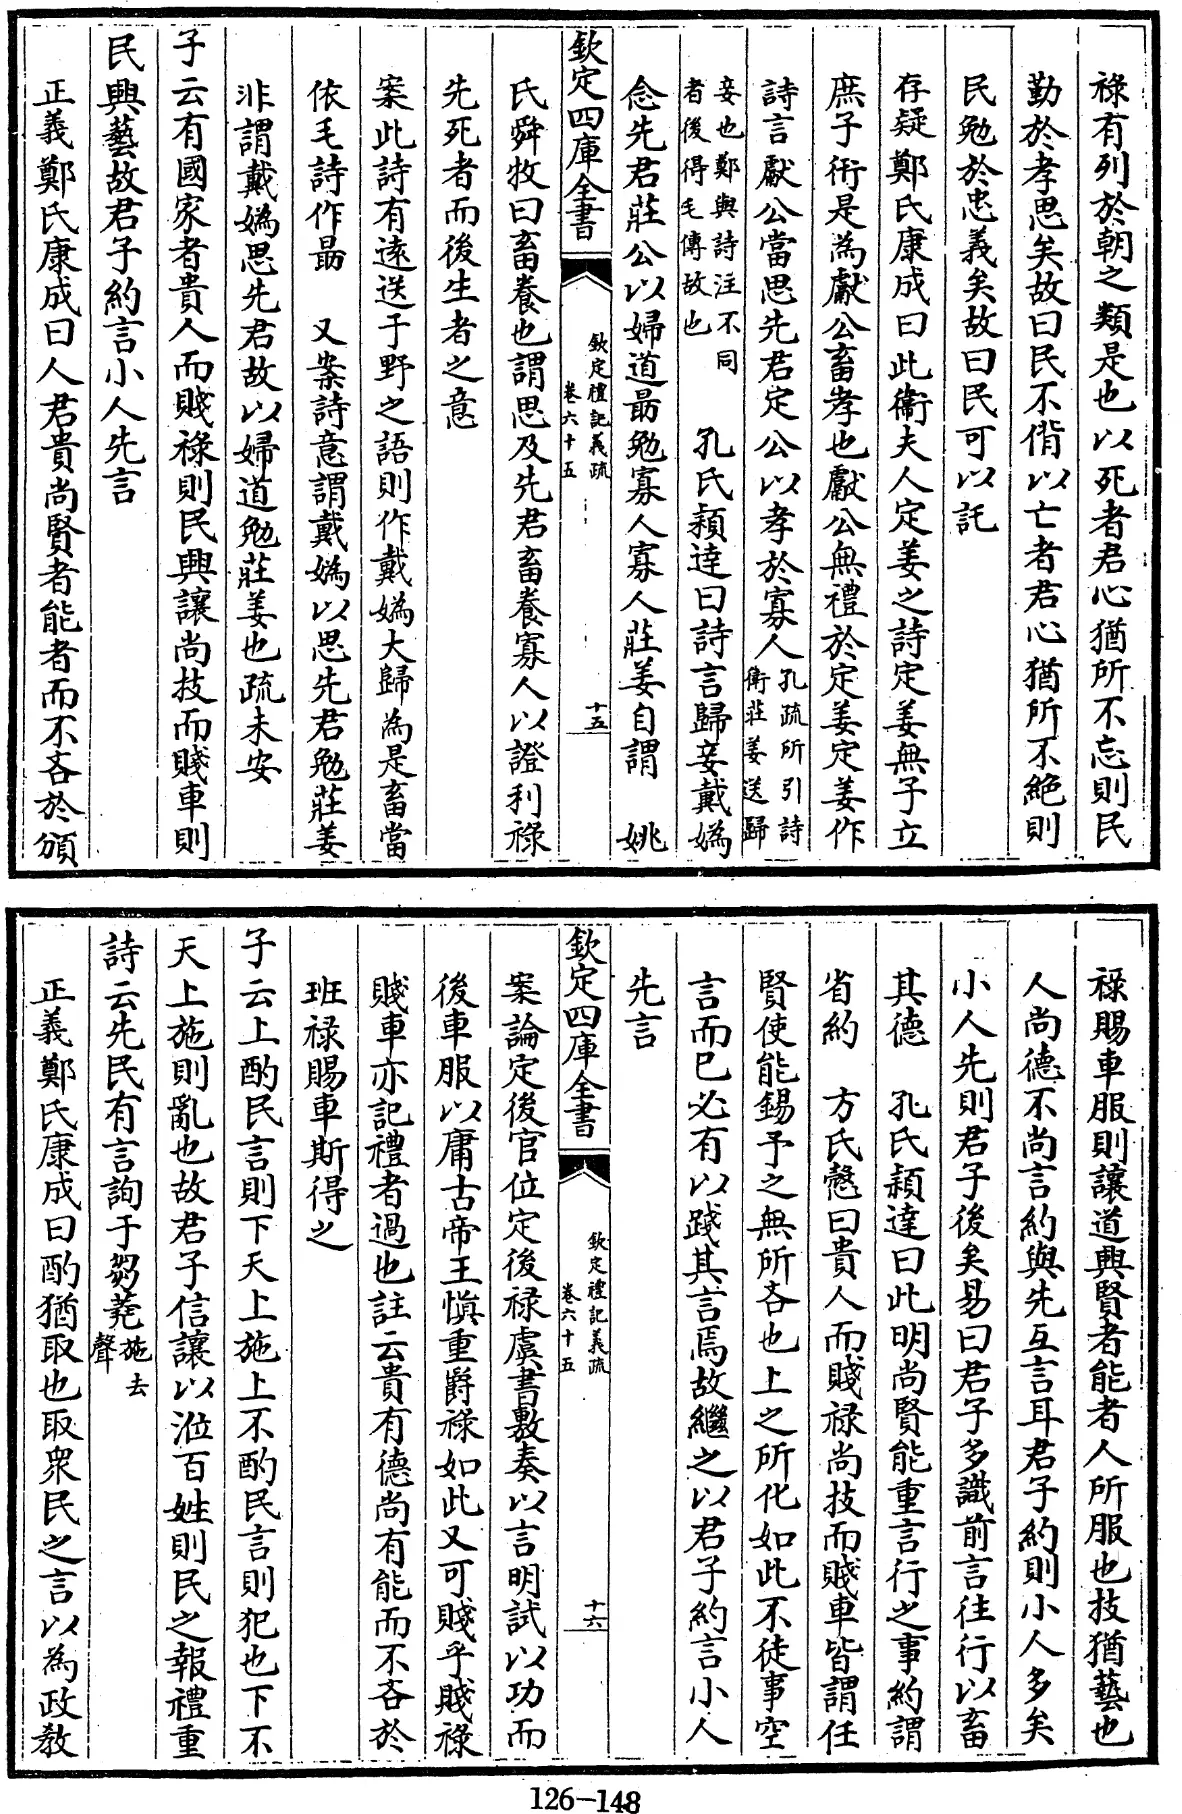 祿有列於朝之類是也以死者君心猶所不忘則民
勤於孝思矣故曰民不偝以亡者君心猶所不絕則
民勉於忠義矣故曰民可以託
存疑鄭氏康成曰此衞夫人定姜之詩定姜無子立
庶子衎是為獻公畜孝也獻公無禮於定姜定姜作
詩言獻公當思先君定公以孝於寡人孔疏所引詩
衛莊姜送歸
妾也鄭與詩注不同
者後得毛傳故也
孔氏穎達曰詩言歸妾戴媯
念先君莊公以婦道勗勉寡人寡人莊姜自謂 姚
欽定四庫全書
欽定禮記義疏
卷六十五
十五
氏舜牧曰畜養也謂思及先君畜養寡人以證利祿
先死者而後生者之意
案此詩有遠送于野之語則作戴媯大歸為是畜當
依毛詩作勗 又案詩意謂戴媯以思先君勉莊姜
非謂戴媯思先君故以婦道勉莊姜也疏未安
子云有國家者貴人而賤祿則民興讓尚技而賤車則
民興藝故君子約言小人先言
正義鄭氏康成曰人君貴尚賢者能者而不吝於頒
祿賜車服則讓道興賢者能者人所服也技猶藝也
人尚德不尚言約與先互言耳君子約則小人多矣
小人先則君子後矣易曰君子多識前言往行以畜
其德 孔氏穎達曰此明尚賢能重言行之事約謂
省約 方氏慤曰貴人而賤祿尚技而賤車皆謂任
賢使能錫予之無所吝也上之所化如此不徒事空
言而已必有以踐其言焉故繼之以君子約言小人
先言
欽定四庫全書
欽定禮記義疏
卷六十五
十六
案論定後官位定後祿虞書敷奏以言明試以功而
後車服以庸古帝王慎重爵祿如此又可賤乎賤祿
賤車亦記禮者過也註云貴有德尚有能而不吝於
班祿賜車斯得之
子云上酌民言則下天上施上不酌民言則犯也下不
天上施則亂也故君子信讓以涖百姓則民之報禮重
詩云先民有言詢于芻蕘施去
聲
正義鄭氏康成曰酌猶取也取衆民之言以為政教
126-148